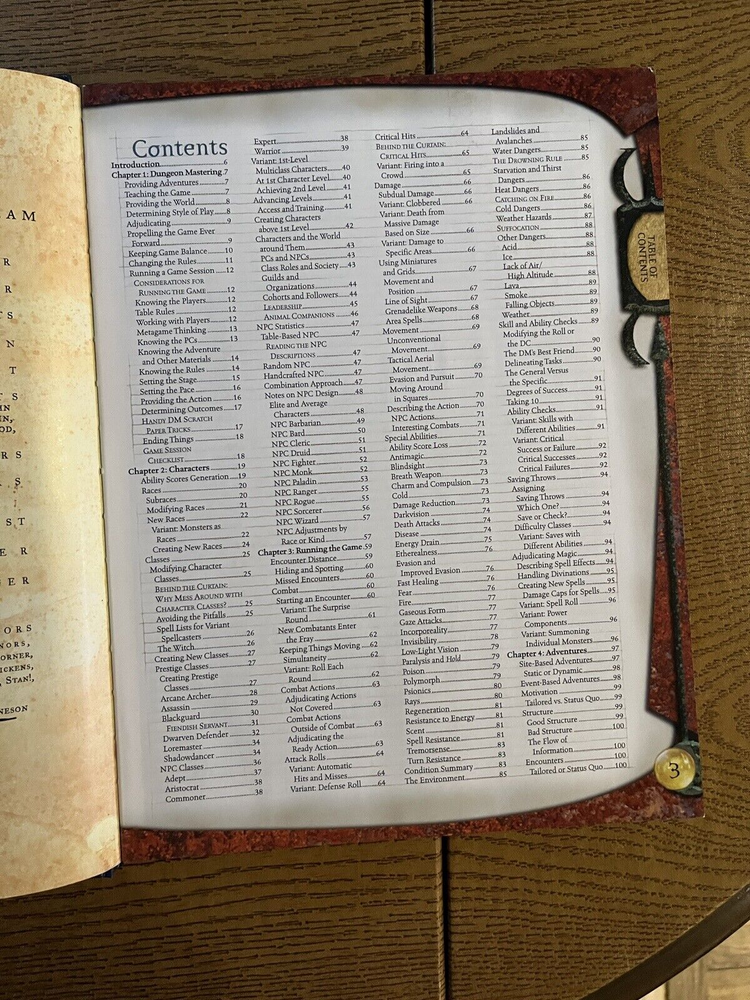 AM
R
R
TS
N
T
TS
IN
N,
OD,
RS
S
ST
ER
ER
ORS
NORS,
ORNER,
ICKENS,
, STAN!,
NESON
Contents
Introduction 6
Chapter 1: Dungeon Mastering 7
Providing Adventures 7
Teaching the Game 7
Providing the World 8
Determining Style of Play 8
Adjudicating 9
Propelling the Game Ever
Forward 9
Keeping Game Balance 10
Changing the Rules 11
Running a Game Session 12
CONSIDERATIONS FOR
RUNNING THE GAME 12
Knowing the Players 12
Table Rules 12
Working with Players 12
Metagame Thinking 13
Knowing the PCs 13
Knowing the Adventure
and Other Materials 14
Knowing the Rules 14
Setting the Stage 15
Setting the Pace 16
Providing the Action 16
Determining Outcomes 17
HANDY DM SCRATCH
PAPER TRICKS 17
Ending Things 18
GAME SESSION
CHECKLIST 18
Chapter 2: Characters 19
Ability Scores Generation 19
Races 20
Subraces 20
Modifying Races 21
New Races 22
Variant: Monsters as
Races 22
Creating New Races 24
Classes 25
Modifying Character
Classes 25
BEHIND THE CURTAIN:
WHY MESS AROUND WITH
CHARACTER CLASSES? 25
Avoiding the Pitfalls 25
Spell Lists for Variant
Spellcasters 26
The Witch 26
Creating New Classes 27
Prestige Classes 27
Creating Prestige
Classes 27
Arcane Archer 28
Assassin 29
Blackguard 30
FIENDISH SERVANT 31
Dwarven Defender 32
Loremaster 34
Shadowdancer 34
NPC Classes 36
Adept 37
Aristocrat 38
Commoner 38
Expert 38
Warrior 39
Variant: 1st-Level
Multiclass Characters 40
At 1st Character Level 40
Achieving 2nd Level 41
Advancing Levels 41
Access and Training 41
Creating Characters
above 1st Level 42
Characters and the World
around Them 43
PCs and NPCs 43
Class Roles and Society 43
Guilds and
Organizations 44
Cohorts and Followers 44
LEADERSHIP 45
ANIMAL COMPANIONS 46
NPC Statistics 47
Table-Based NPC 47
READING THE NPC
DESCRIPTIONS 47
Random NPC 47
Handcrafted NPC 47
Combination Approach 47
Notes on NPC Design 48
Elite and Average
Characters 48
NPC Barbarian 49
NPC Bard 50
NPC Cleric 51
NPC Druid 51
NPC Fighter 52
NPC Monk 52
NPC Paladin 53
NPC Ranger 55
NPC Rogue 55
NPC Sorcerer 56
NPC Wizard 57
NPC Adjustments by
Race or Kind 57
Chapter 3: Running the Game 59
Encounter Distance 59
Hiding and Spotting 60
Missed Encounters 60
Combat 60
Starting an Encounter 60
Variant: The Surprise
Round 61
New Combatants Enter
the Fray 62
Keeping Things Moving 62
Simultaneity 62
Variant: Roll Each
Round 62
Combat Actions 63
Adjudicating Actions
Not Covered 63
Combat Actions
Outside of Combat 63
Adjudicating the
Ready Action 63
Attack Rolls 64
Variant: Automatic
Hits and Misses 64
Variant: Defense Roll 64
Critical Hits 64
BEHIND THE CURTAIN:
CRITICAL HITS 65
Variant: Firing into a
Crowd 65
Damage 66
Subdual Damage 66
Variant: Clobbered 66
Variant: Death from
Massive Damage
Based on Size 66
Variant: Damage to
Specific Areas 66
Using Miniatures
and Grids 67
Movement and
Position 67
Line of Sight 67
Grenadelike Weapons 68
Area Spells 68
Movement 69
Unconventional
Movement 69
Tactical Aerial
Movement 69
Evasion and Pursuit 70
Moving Around
in Squares 70
Describing the Action 70
NPC Actions 71
Interesting Combats 71
Special Abilities 71
Ability Score Loss 72
Antimagic 72
Blindsight 72
Breath Weapon 73
Charm and Compulsion 73
Cold 73
Damage Reduction 73
Darkvision 74
Death Attacks 74
Disease 74
Energy Drain 75
Etherealness 76
Evasion and
Improved Evasion 76
Fast Healing 76
Fear 76
Fire 77
Gaseous Form 77
Gaze Attacks 77
Incorporeality 77
Invisibility 78
Low-Light Vision 79
Paralysis and Hold 79
Poison 79
Polymorph 80
Psionics 80
Rays 80
Regeneration 81
Resistance to Energy 81
Scent 81
Spell Resistance 81
Tremorsense 83
Turn Resistance 83
Condition Summary 83
The Environment 85
Landslides and
Avalanches 85
Water Dangers 85
THE DROWNING RULE 85
Starvation and Thirst
Dangers 86
Heat Dangers 86
CATCHING ON FIRE 86
Cold Dangers 86
Weather Hazards 87
SUFFOCATION 88
Other Dangers 88
Acid 88
Ice 88
Lack of Air/
High Altitude 88
Lava 89
Smoke 89
Falling Objects 89
Weather 89
Skill and Ability Checks 89
Modifying the Roll or
the DC 90
The DM's Best Friend 90
Delineating Tasks 90
The General Versus
the Specific 91
Degrees of Success 91
Taking 10 91
Ability Checks 91
Variant: Skills with
Different Abilities 91
Variant: Critical
Success or Failure 92
Critical Successes 92
Critical Failures 92
Saving Throws 94
Assigning
Saving Throws 94
Which One? 94
Save or Check? 94
Difficulty Classes 94
Variant: Saves with
Different Abilities 94
Adjudicating Magic 94
Describing Spell Effects 94
Handling Divinations 95
Creating New Spells 95
Damage Caps for Spells 95
Variant: Spell Roll 96
Variant: Power
Components 96
Variant: Summoning
Individual Monsters 96
Chapter 4: Adventures 97
Site-Based Adventures 97
Static or Dynamic 98
Event-Based Adventures 98
Motivation 99
Tailored vs. Status Quo 99
Structure 99
Good Structure 99
Bad Structure 100
The Flow of
Information 100
Encounters 100
Tailored or Status Quo 100
TABLE OF
CONTENTS
3